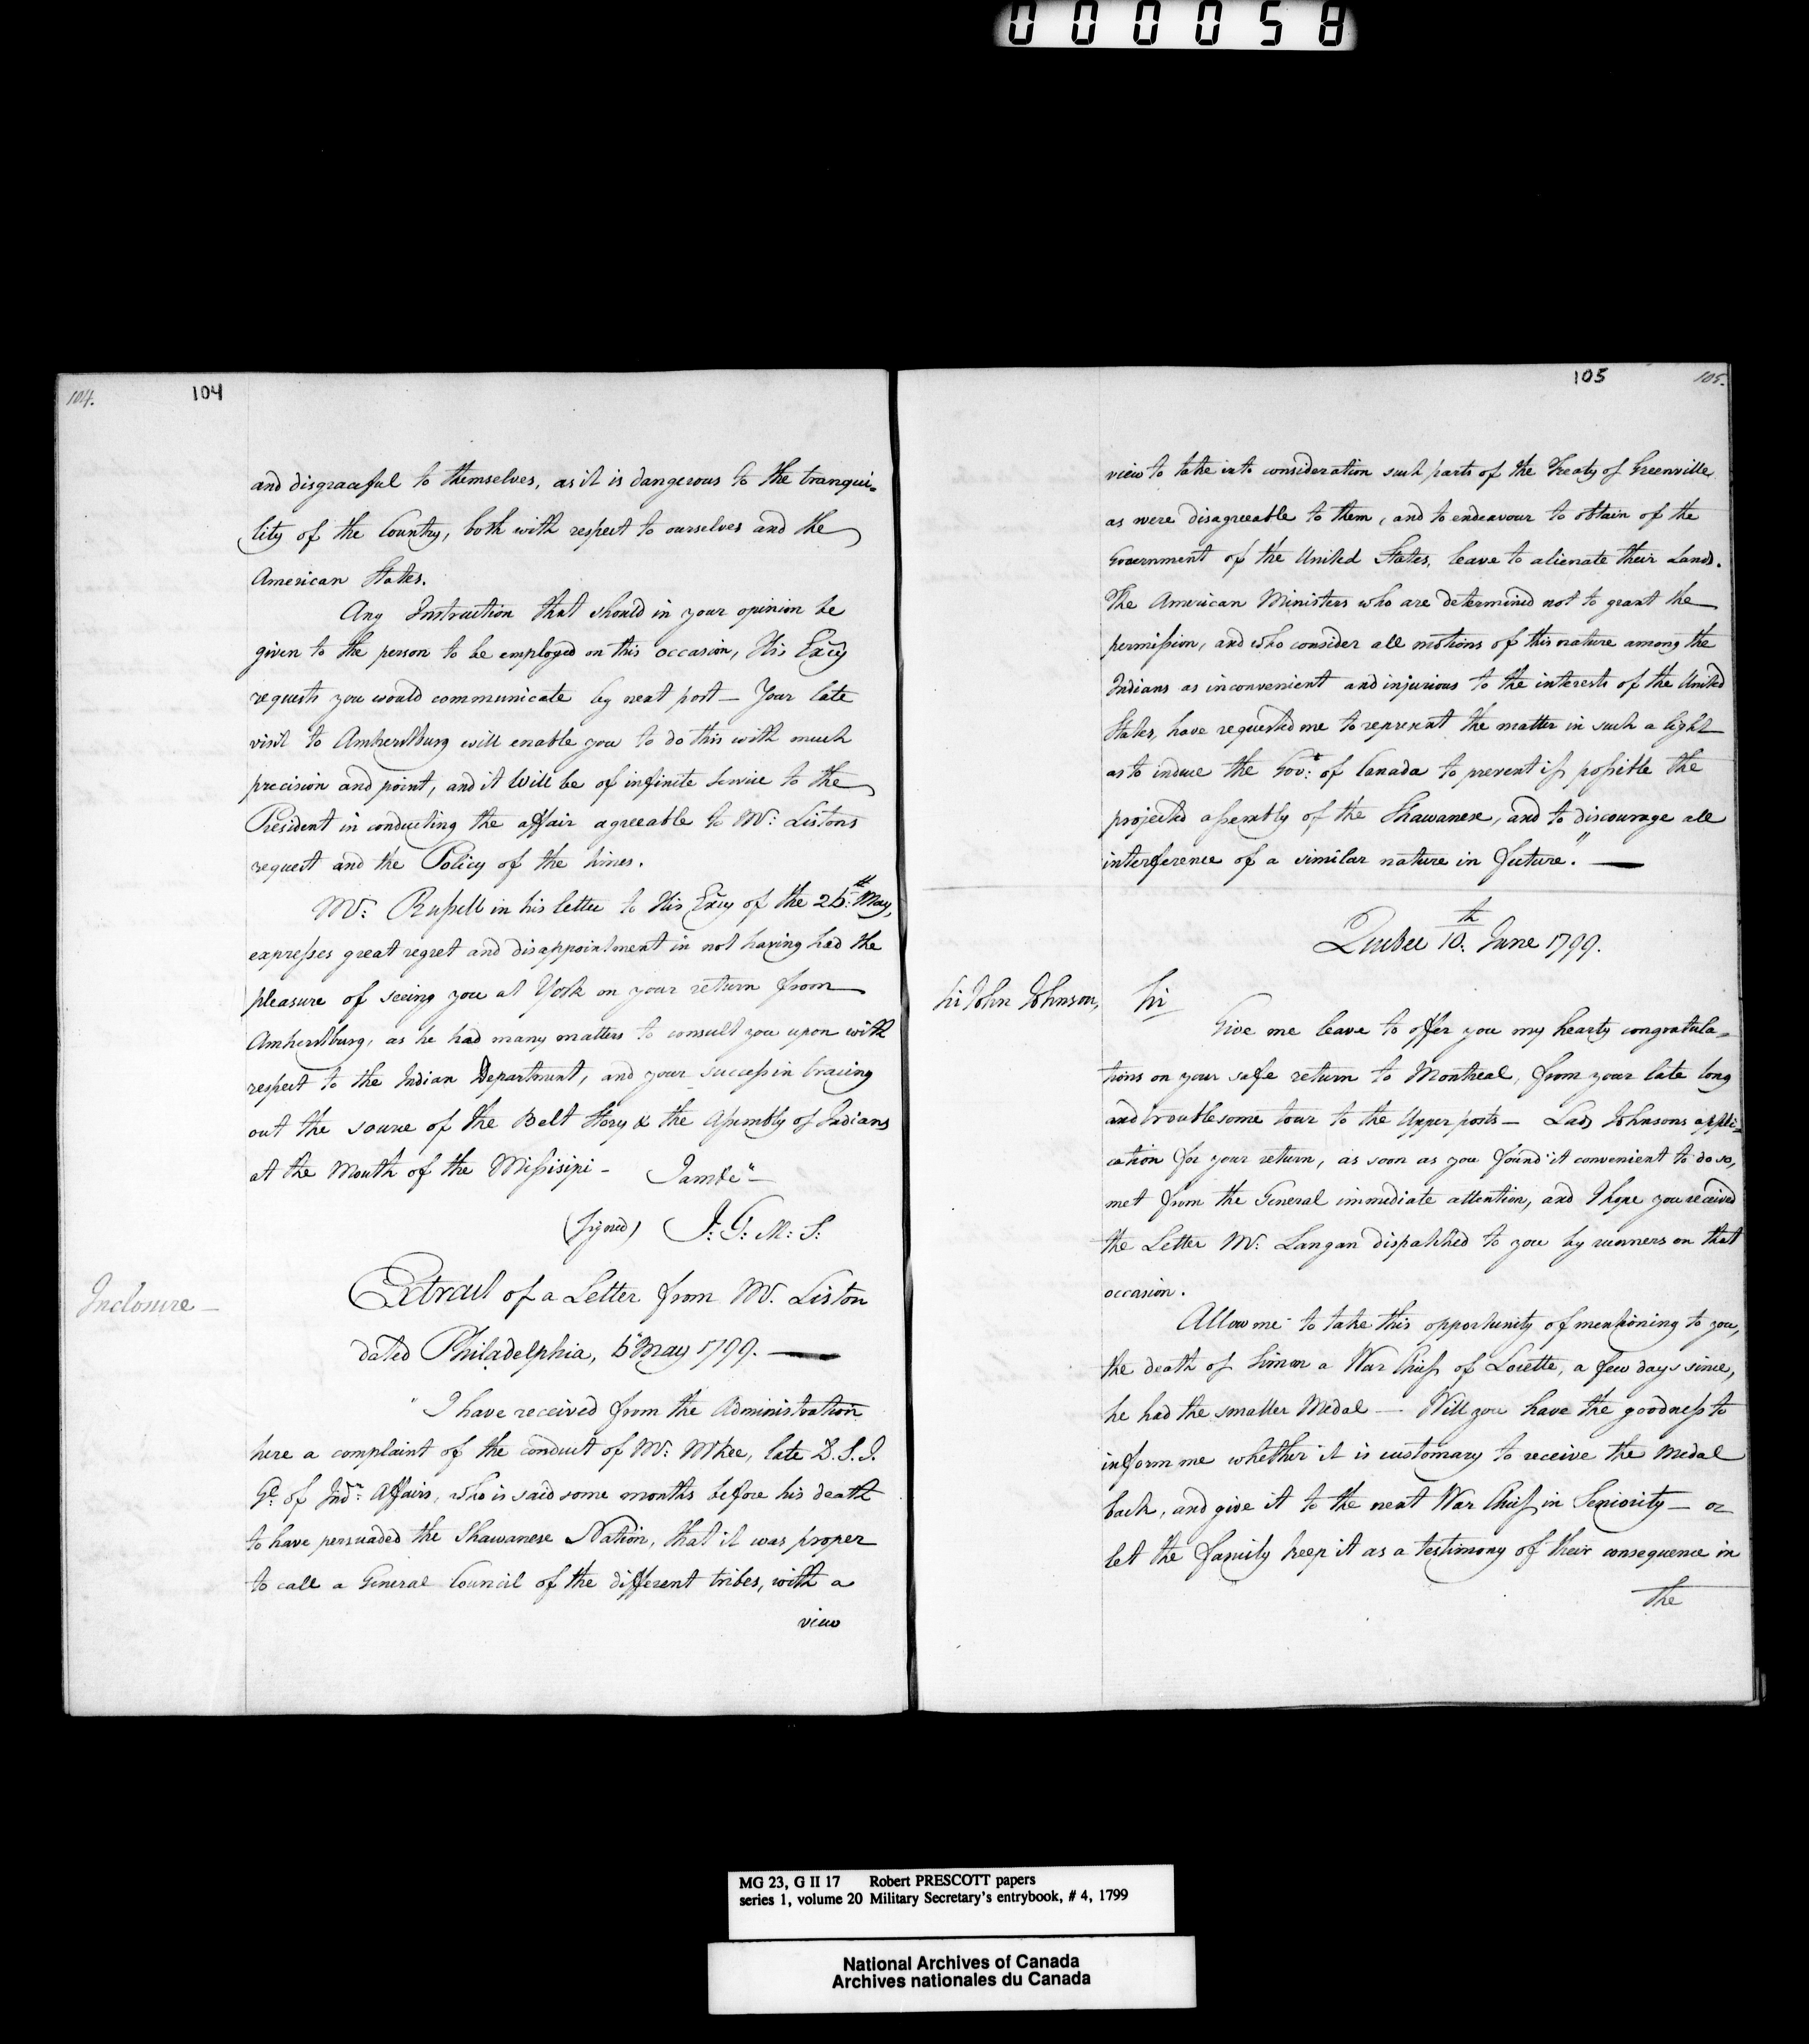 000058
104. 104
and disgraceful to themselves, as it is dangerous to the tranqui=
lity of the Country, both with respect to ourselves and the
American States.
Any Instruction that should in your opinion be
given to the person to be employed on this occasion, His Excy
requests you would communicate by next post — Your late
visit to Amherstburg will enable you to do this with much
precision and point, and it will be of infinite service to the
President in conducting the affair agreeable to Mr: Listons
request and the Policy of the times.
Mr: Russell in his letter to His Excy of the 26th: May,
expresses great regret and disappointment in not having had the
pleasure of seeing you at York on your return from
Amherstburg, as he had many matters to consult you upon with
respect to the Indian Department, and your success in tracing
out the source of the Belt Story & the Assembly of Indians
at the Mouth of the Missisipi — I am &c" —
(signed) J: G: M: S:
Inclosure —
Extract of a Letter from Mr. Liston
dated Philadelphia, 6" May 1799. —
" I have received from the Administration
here a complaint of the conduct of Mr: McKee, late D. S. I.
Gl. of Indn: Affairs, who is said some months before his death
to have persuaded the Shawanese Nation, that it was proper
to call a General Council of the different tribes, with a
view
105 105.
view to take into consideration such parts of the Treaty of Greenville
as were disagreeable to them, and to endeavour to obtain of the
Government of the United States, leave to alienate their Lands.
The American Ministers who are determined not to grant the
permission, and who consider all motions of this nature among the
Indians as inconvenient and injurious to the interests of the United
States, have requested me to represent the matter in such a light
as to induce the Govt: of Canada to prevent if possible the
projected assembly of the Shawanese, and to discourage all
interference of a similar nature in future." —
Quebec 10th: June 1799.
Sir John Johnson,
Sir
Give me leave to offer you my hearty congratula=
tions on your safe return to Montreal, from your late long
and troublesome tour to the Upper posts — Lady Johnsons appli=
cation for your return, as soon as you found it convenient to do so,
met from the General immediate attention, and I hope you received
the Letter Mr: Langan dispatched to you by runners on that
occasion.
Allow me to take this opportunity of mentioning to you,
the death of Simon a War Chief of Lorette, a few days since,
he had the smaller Medal — Will you have the goodness to
inform me whether it is customary to receive the Medal
back, and give it to the next War Chief in Seniority — or
let the family keep it as a testimony of their consequence in
the
MG 23, G II 17 Robert PRESCOTT papers
series 1, volume 20 Military Secretary's entrybook, # 4, 1799
National Archives of Canada
Archives nationales du Canada